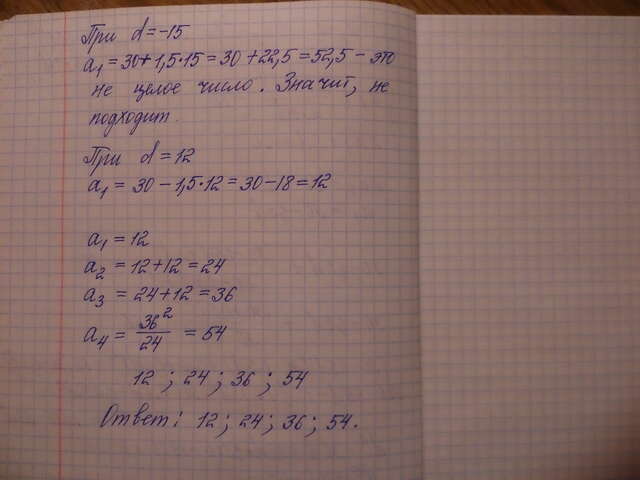 При d=-15
a₁ = 30+1,5·15 = 30+22,5 = 52,5 - это
не целое число. Значит, не
подходит.
При d = 12
a₁ = 30 - 1,5·12 = 30 - 18 = 12
a₁ = 12
a₂ = 12+12 = 24
a₃ = 24+12 = 36
a₄ = 36²/24 = 54
12 ; 24 ; 36 ; 54
Ответ: 12 ; 24 ; 36 ; 54.